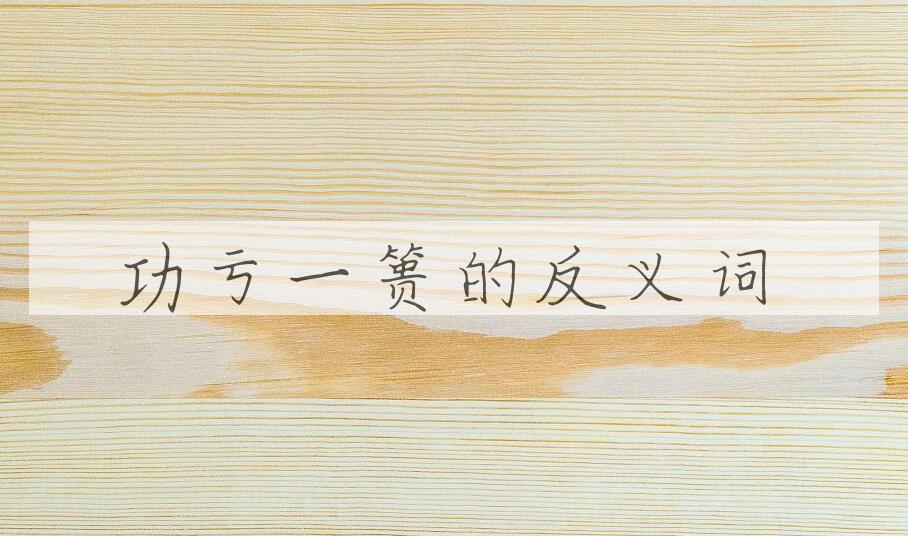 功亏一篑的反义词